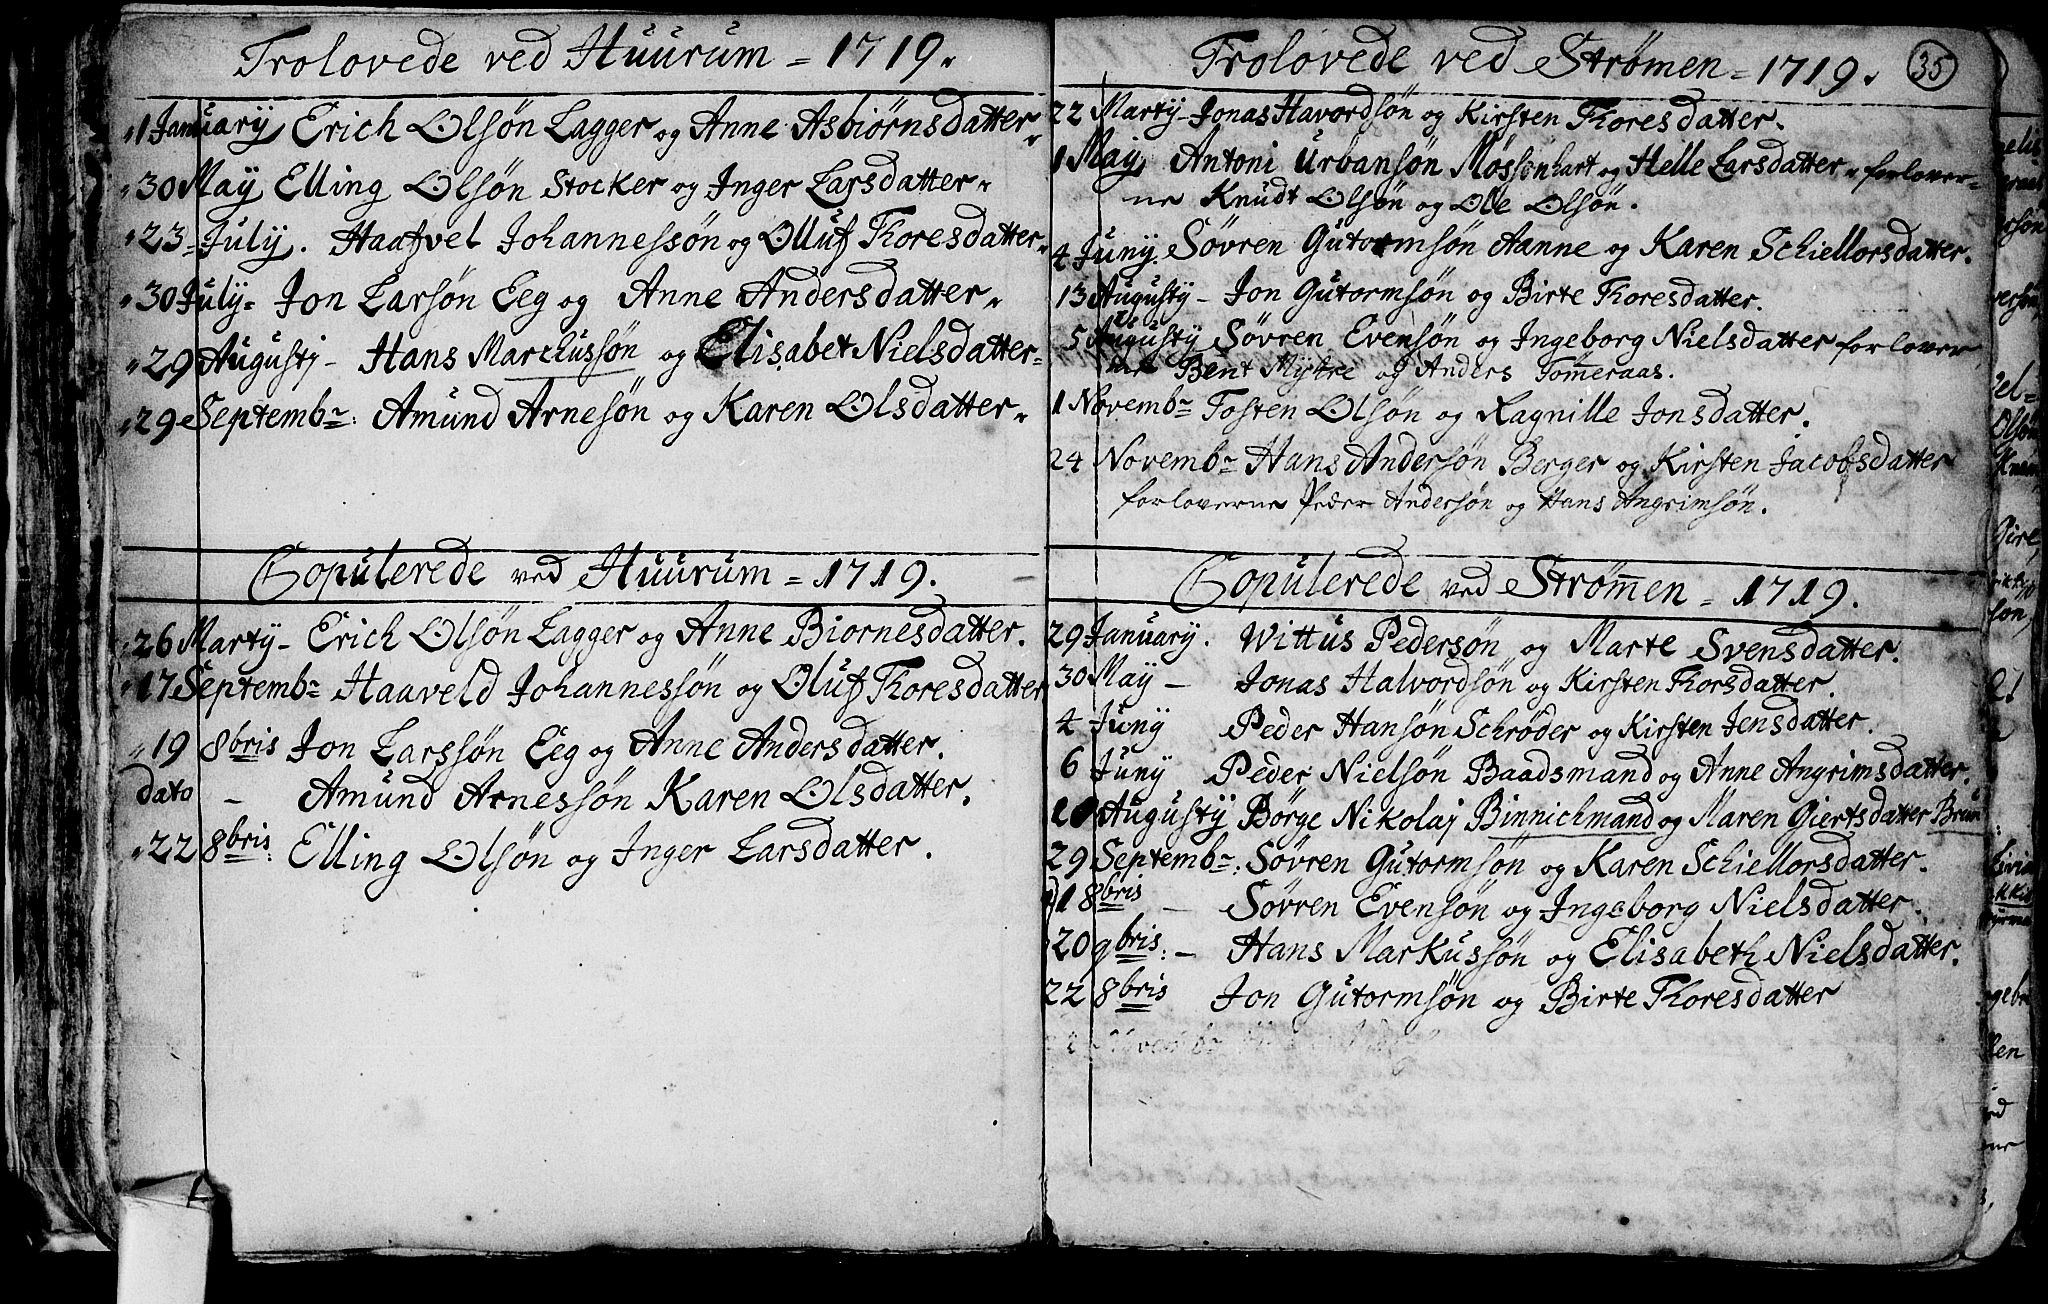 Trolovede ved Huurum = 1719.
1 January Erich Olsøn Lagger og Anne Asbiørnsdatter
30 May Elling Olsøn Stocker og Inger Larsdatter
23 July. Haafvel Johannessøn og Olluf Thoresdatter
30 July = Jon Larsøn Eeg og Anne Andersdatter
29 Augustj - Hans Marchussøn og Elisabet Nielsdatter
29 Septembr: Amund Arnesøn og Karen Olsdatter
Copulerede ved Huurum = 1719.
26 Marty - Erich Olsøn Lagger og Anne Biornesdatter.
17 Septembr Haaveld Johannessøn og Oluf Thoresdatter
19 8bris Jon Larssøn Eeg og Anne Andersdatter.
dato - Amund Arnessøn Karen Olsdatter.
22 8bris: Elling Olsøn og Inger Larsdatter.
Trolovede ved Strømen = 1719. 35
22 Marty - Jonas Havordsøn og Kirsten Thoresdatter.
1 May Antoni Urbansøn Møssenhart og Helle Larsdatter forlover=
ne Knudt Olsøn og Ole Olsøn.
4 Juny. Søvren Gutormsøn Aanne og Karen Schiellorsdatter.
13 Augusty - Jon Gutormsøn og Birte Thoresdatter.
5 Augusty Søvren Evensøn og Ingeborg Nielsdatter forlover
ne Bent Mytre og Anders Tømeraas.
1 Novembr Tosten Olsøn og Ragnille Jonsdatter.
24 Novembr Hans Andersøn Berger og Kirsten Jacobsdatter
forloverne Peder Andersøn og Hans Angrimsøn.
Copulerede ved Strømen = 1719.
29 January. Wittus Pedersøn og Marte Svensdatter.
30 May - Jonas Halvordsøn og Kirsten Thorsdatter.
4 Juny Peder Hansøn Schrøder og Kirsten Jensdatter.
6 Juny Peder Nielsøn Baadsmand og Anne Angrimsdatter.
Augusty Børge Nikolaj Binnichmand og Maren Giertsdatter Brun
29 Septembr: Søvren Gutormsøn og Karen Schiellorsdatter.
1 8bris - Søvren Evensøn og Ingeborg Nielsdatter.
20 9bris: - Hans Markussøn og Elisabeth Nielsdatter.
22 8bris Jon Gutormsøn og Birte Thoresdatter